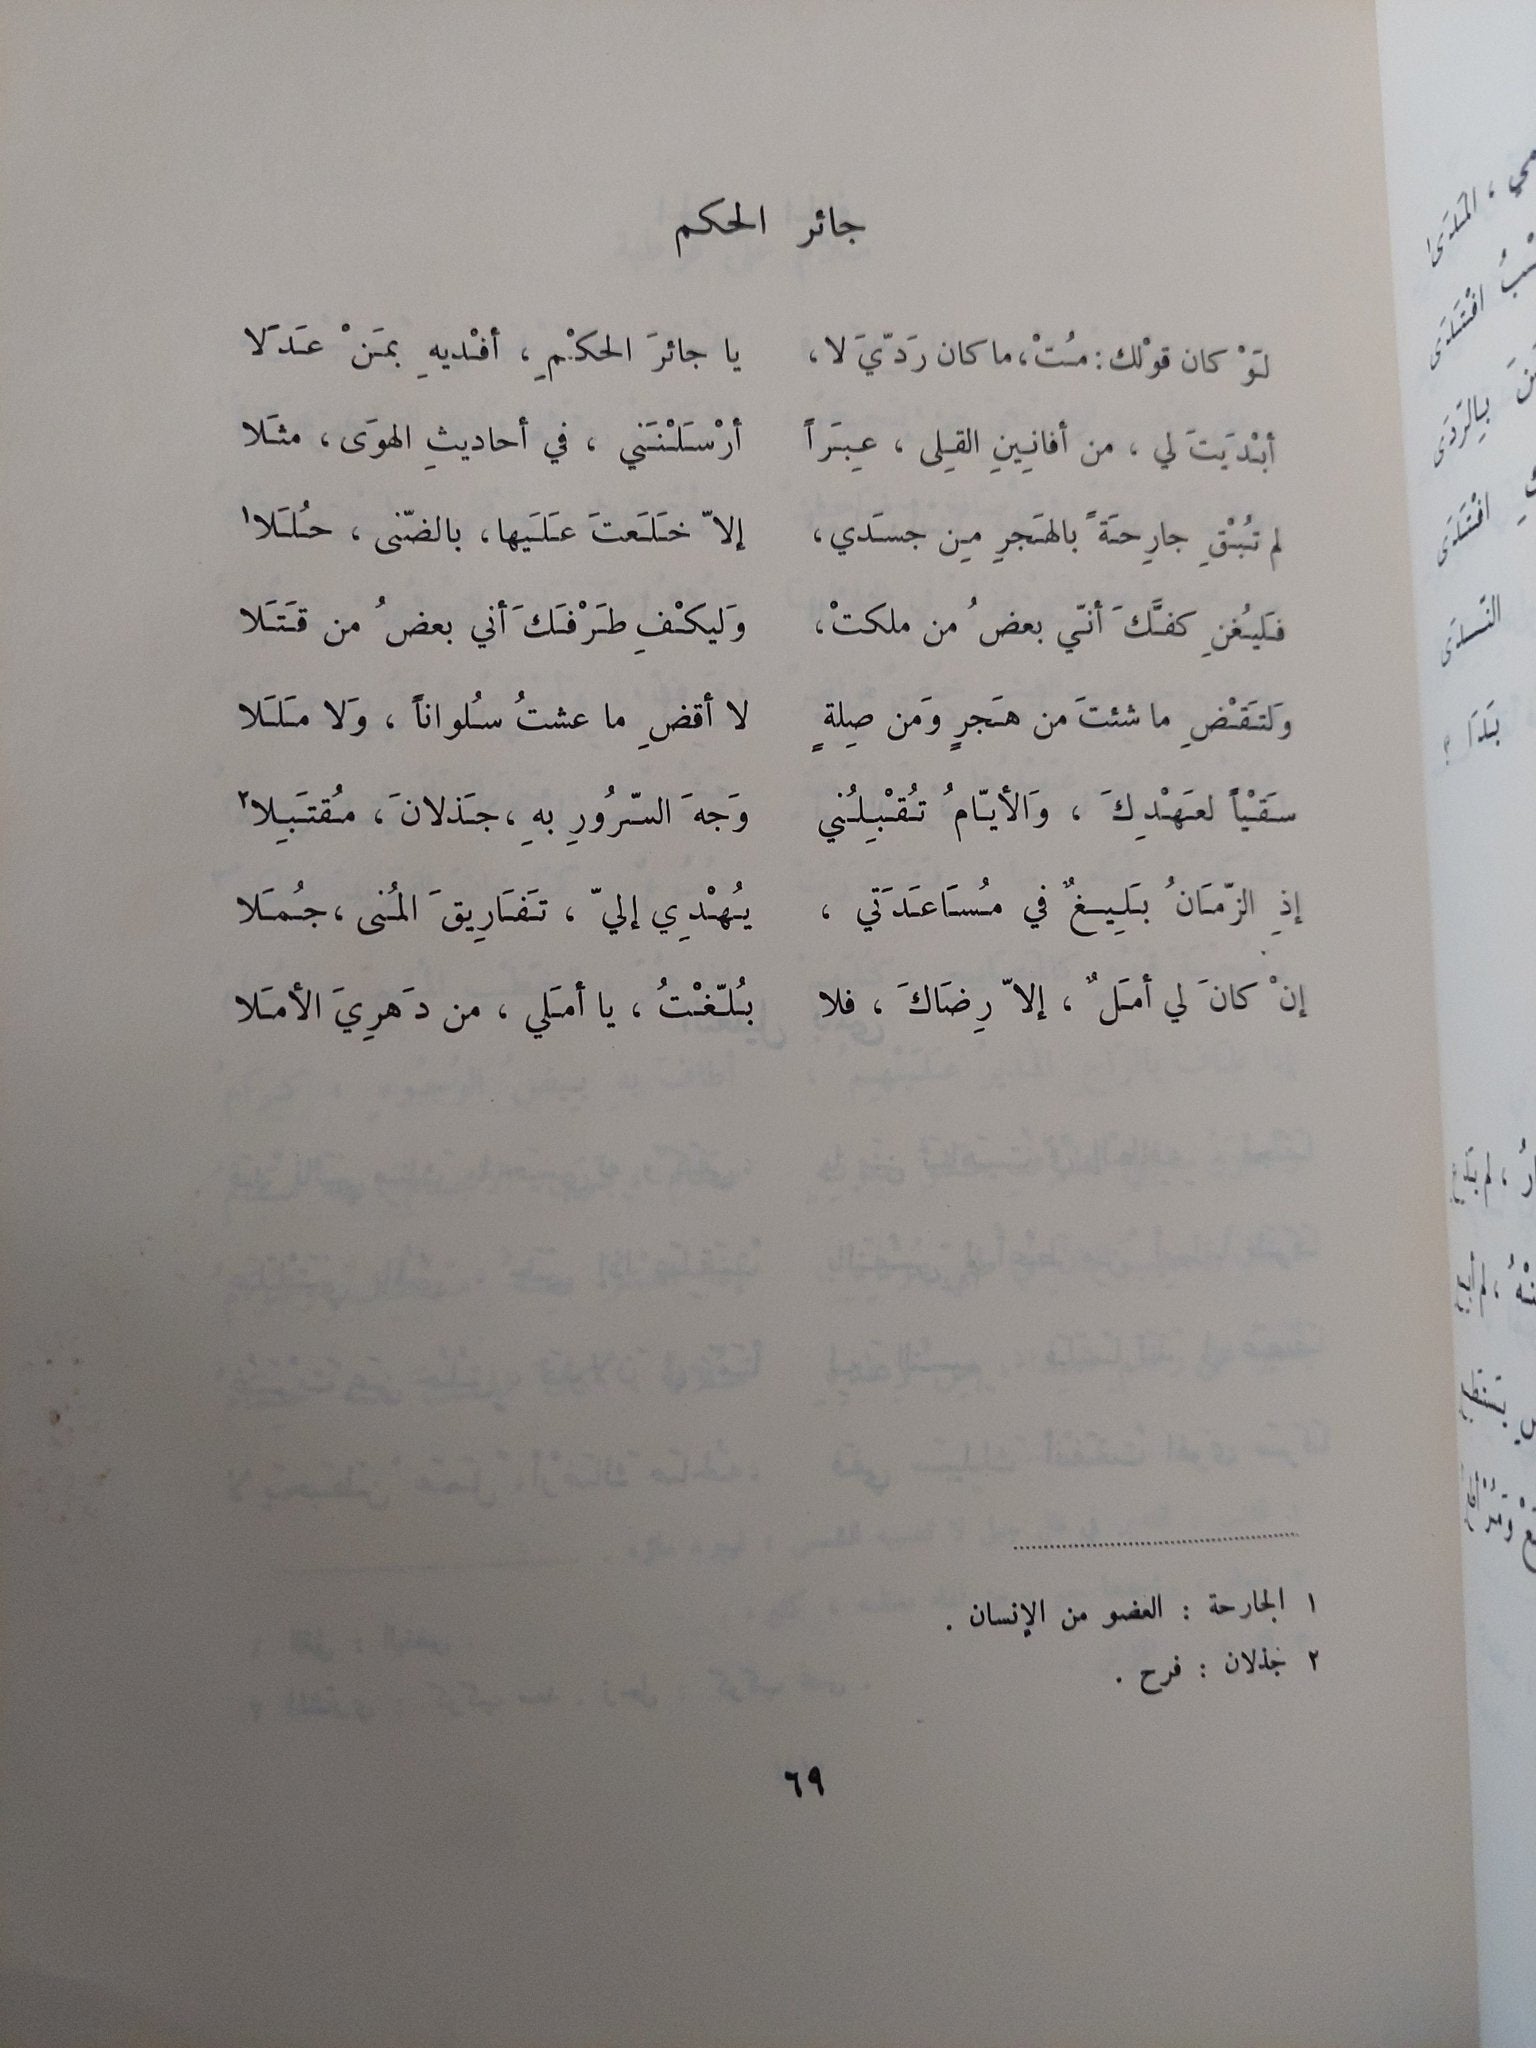 جائر الحكم
لَوْ كان قوْلك: مُتْ، ما كان رَدّيَ لا، يا جائرَ الحكْمِ، أفْديهِ بمَنْ عَدَلا
أبْدَيَتَ لي، من أفانِينِ القِلى، عِبَراً أرْسَلْنَني، في أحاديثِ الهوَى، مثَلا
لم تُبْقِ جارِحَةً بالهَجرِ مِن جسَدي، إلاّ خَلَعتَ عَلَيها، بالضّنى، حُلَلا١
فَليُغنِ كفَّكَ أنّي بعضُ من ملكتْ، وَليكْفِ طَرْفَكَ أني بعضُ من قَتَلا
وَلتَقْضِ ما شئتَ من هَجرٍ وَمن صِلةٍ لا أقضِ ما عشتُ سُلواناً، وَلا مَلَلا
سَقْياً لعَهْدِكَ، وَالأيّامُ تُقْبِلُني وَجهَ السّرُورِ بهِ، جَذلانَ، مُقتَبِلا٢
إذِ الزّمَانُ بَلِيغٌ في مُسَاعَدَتي، يُهْدِي إليّ، تَفَارِيقَ المُنى، جُمَلا
إنْ كانَ لي أمَلٌ، إلاّ رِضَاكَ، فلا بُلّغْتُ، يا أمَلي، من دَهرِيَ الأمَلا
١ الجارحة : العضو من الإنسان .
٢ جذلان : فرح .
٦٩